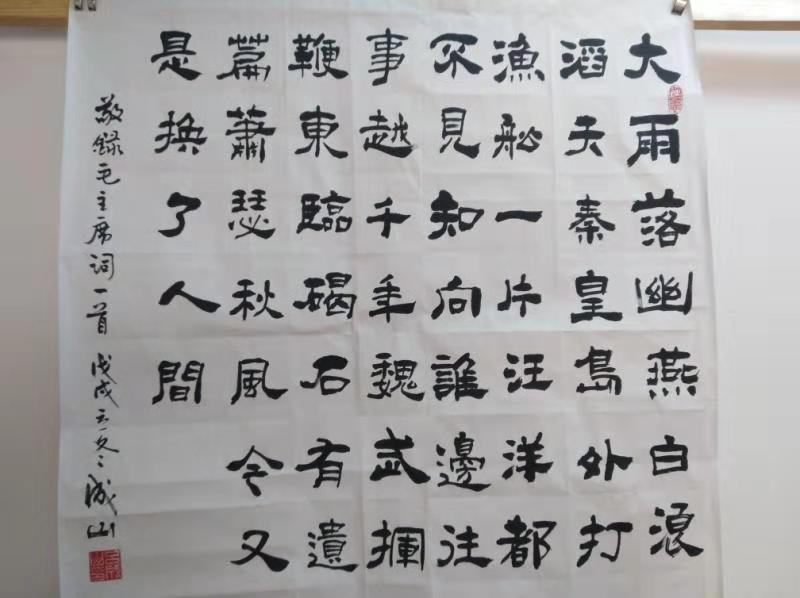 大雨落幽燕白浪
滔天秦皇島外打
漁船一片汪洋都
不見知向誰邊往
事越千年魏武
鞭東臨碣石有遺
篇蕭瑟秋風今又
是換了人間
敬録毛主席词一首 戊戌 冬 成山